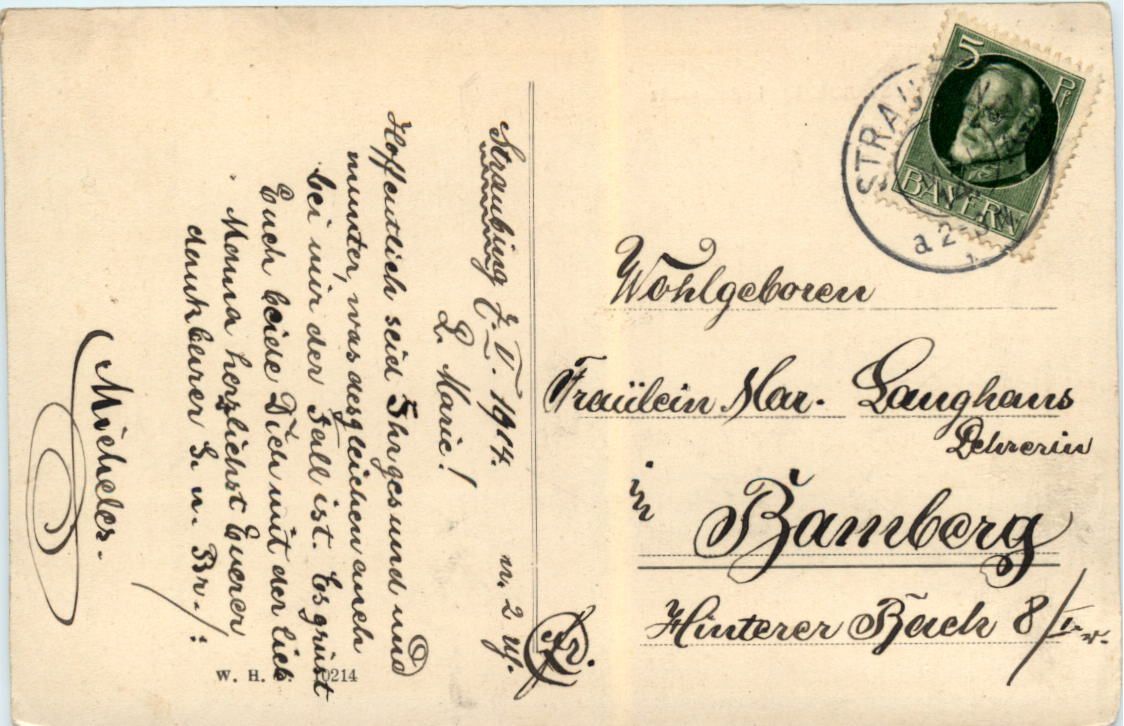 Straubing 7.V. 1914. n. 2 Uf.
L. Marie!
Hoffentlich seid Ihr gesund und
munter, was desgleichen auch
bei mir der Fall ist. Es grüsst
Euch beide Dich mit der lieb
Mama herzlichst Euerer
dankbarer S. u. Br./:
Micheler.
W. H. 10214
5 Pf
BAYERN
STRAUBING
a 2-3 N
Wohlgeboren
Fräulein Mar. Langhans
Lehrerin
in
Bamberg
Hinterer Bach 8/I.
Fr.